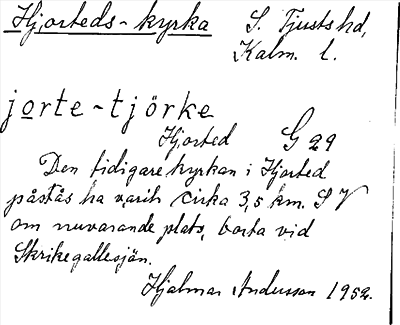 Hjorteds-kyrka S. Tjusts hd,
Kalm. l.
jorte-tjörke
Hjorted G 29
Den tidigare kyrkan i Hjorted
påstås ha varit cirka 3,5 km. S V
om nuvarande plats, borta vid
Skrikegallesjön.
Hjalmar Andersson 1952.